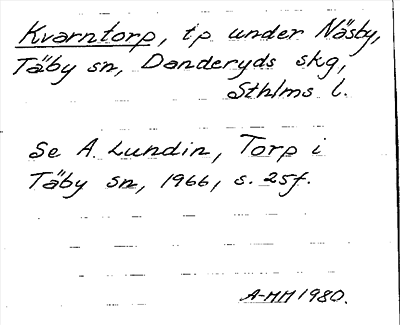 Kvarntorp, tp under Näsby,
Täby sn, Danderyds skg,
Sthlms l.
Se A. Lundin, Torp i
Täby sn, 1966, s. 25f.
A-MM 1980.